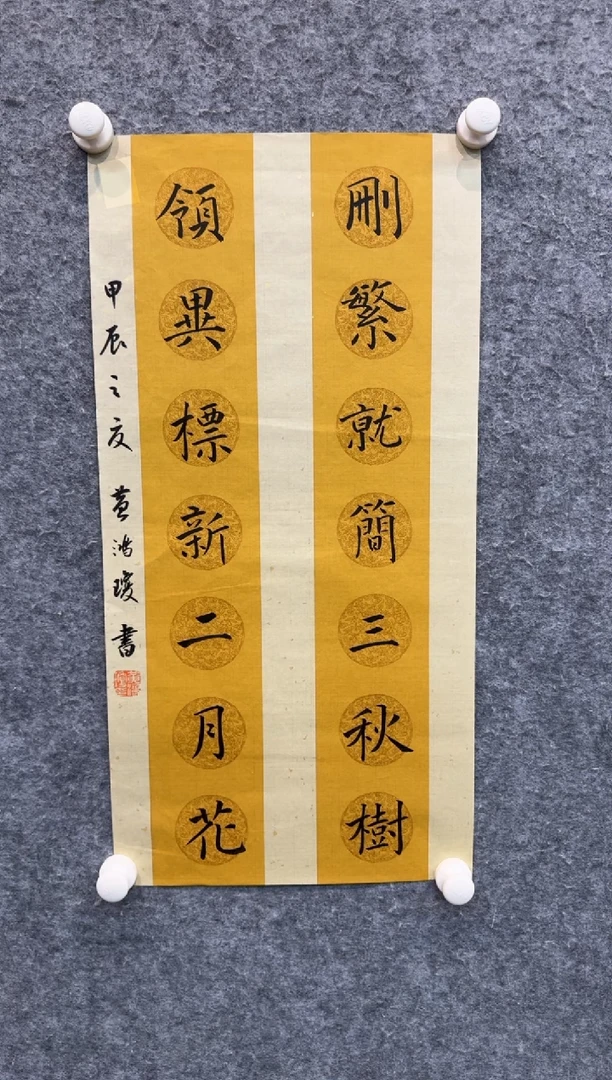 刪繁就簡三秋樹
領異標新二月花
甲辰之夏 黃鴻瓊書